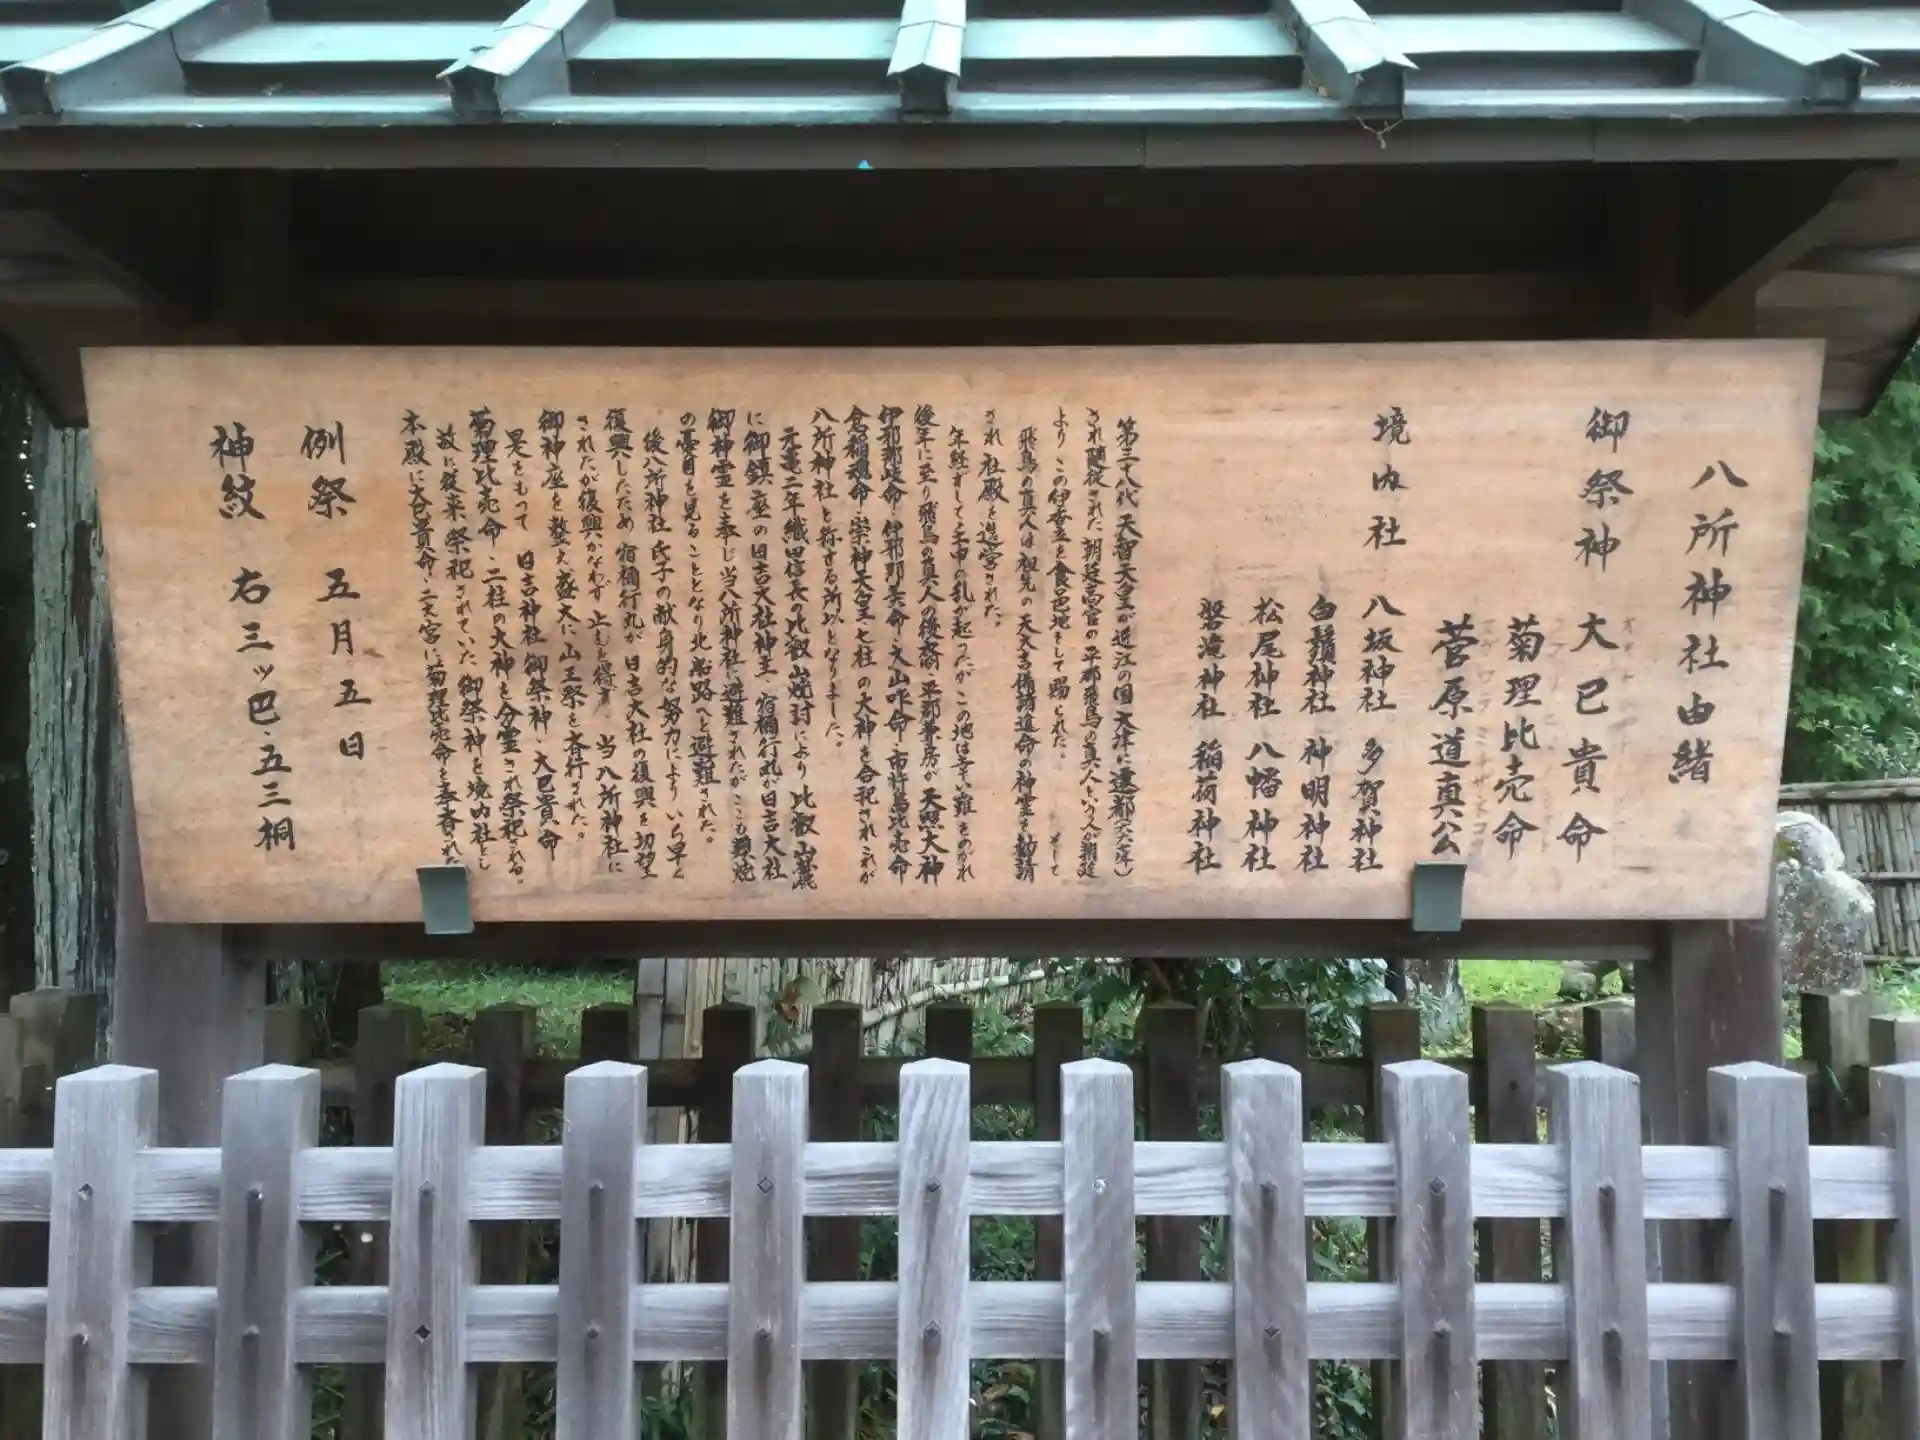 八所神社由緒
御祭神 大巳貴命
菊理比売命
菅原道真公
境内社 八坂神社 多賀神社
白鬚神社 神明神社
松尾神社 八幡神社
磐滝神社 稲荷神社
第三十八代天智天皇が近江の国大津に遷都(六六七年)
され随従された朝廷高官の平群飛鳥の真人という人が朝廷
より この伊香立を食邑地をして賜られた。 そして
飛鳥の真人は祖先の天太吉備諸進命の神霊を勧請
され社殿を造営された。
年経ずして壬申の乱が起ったがこの地は幸い難をのがれ
後年に至り飛鳥の真人の後裔・平群兼房が天照大神
伊邪那岐命・伊邪那美命・大山咋命・市杵島比売命
倉稲魂命・崇神天皇七柱の大神を合祀されこれが
八所神社と称する所以となりました。
元亀二年織田信長の比叡山焼討により比叡山麓
に御鎮座の日吉大社神主 宿禰行丸が日吉大社
御神霊を奉じ当八所神社に避難されたがここも類焼
の憂目を見ることとなり北船路へと避難された。
後八所神社氏子の献身的な努力により いち早く
復興したため 宿禰行丸が日吉大社の復興を切望
されたが復興かなわず 止むを得ず、当八所神社に
御神座を整え盛大に山王祭を斉行された。
是をもって 日吉神社御祭神・大巳貴命
菊理比売命・二柱の大神を分霊され祭祀される。
故に従来祭祀されていた御祭神を境内社とし
本殿に大巳貴命・二之宮に菊理比売命を奉斉された
例祭 五月五日
神紋 右三ッ巴・五三桐